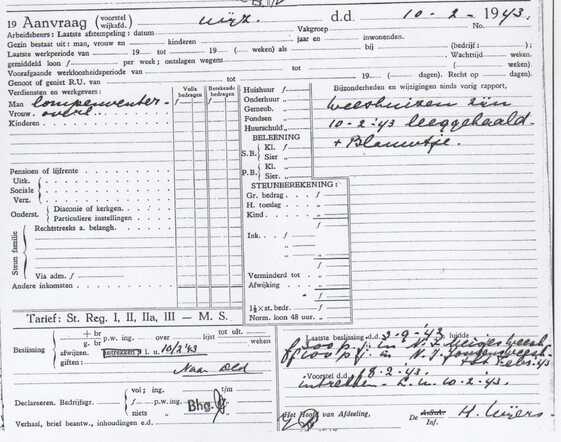 19 Aanvraag (voorstel wijksfd.) wijz. d.d. 10-2-1943.
Arbeidsbeurs: Laatste afstempeling: datum Vakgroep No.
Gezin bestaat uit: man, vrouw en kinderen jaar en inwonenden.
Laatste werkperiode van 19 tot 19 ( weken) als bij (bedrijf: );
gemiddeld loon / per week; ontslagen wegens Wachttijd weken.
Voorafgaande werkloosheidsperiode van tot ( weken)
Genoot of geniet R.U. van tot 19 ( dagen). Recht op dagen).
Verdiensten en werkgever: Volle bedragen Berekende bedragen
Man lompenventer
Vrouw overl.
Kinderen
Pensioen of lijfrente
Uitk.
Sociale
Verz.
Onderst. Diaconie of kerkgen.
Particuliere instellingen
Steun familie
Rechtstreeks a. belangh.
Via adm. /
Andere inkomsten
Huishuur /
Onderhuur „
Geneesb. „
Fondsen „
Huurschuld „
BELEENING
S.B. Kl. /
Sier „
P.B. Kl. /
Sier. „
STEUNBEREKENING:
Gr. bedrag /
H. toeslag „
Kind /
Ink. /
Verminderd tot /
Afwijking /
1½ × st. bedr. /
Norm. loon 48 uur. /
Bijzonderheden en wijzigingen ninds vorig rapport,
Weeshuizen zijn
10-2-'43 leeggehaald
+ Blauwtje.
Tarief: St. Reg. I, II, IIa, III — M. S.
Beslissing + br p.w. ing. over lijst tot uit. weken
g. br
afwijzen. intrekken i. u. 10/2'43
giften:
Naar Old
Declareeren. Bedrijfsgr. vol; ing. t/m
/ p.w. ing.
niets Bhg.
Verhaal, brief beantw., inhoudingen e.d.
Laatste beslissing d.d. 2-9-'43 luidde
p.j. in N.I. Meisjesweesh
p.j. in N.I. Jongensweesh
Voorstel d.d. 18.2.'43.
intrekken - i. u. 10-2-'43.
Het Hoofd van Afdeeling,
De Adstr. Inf.